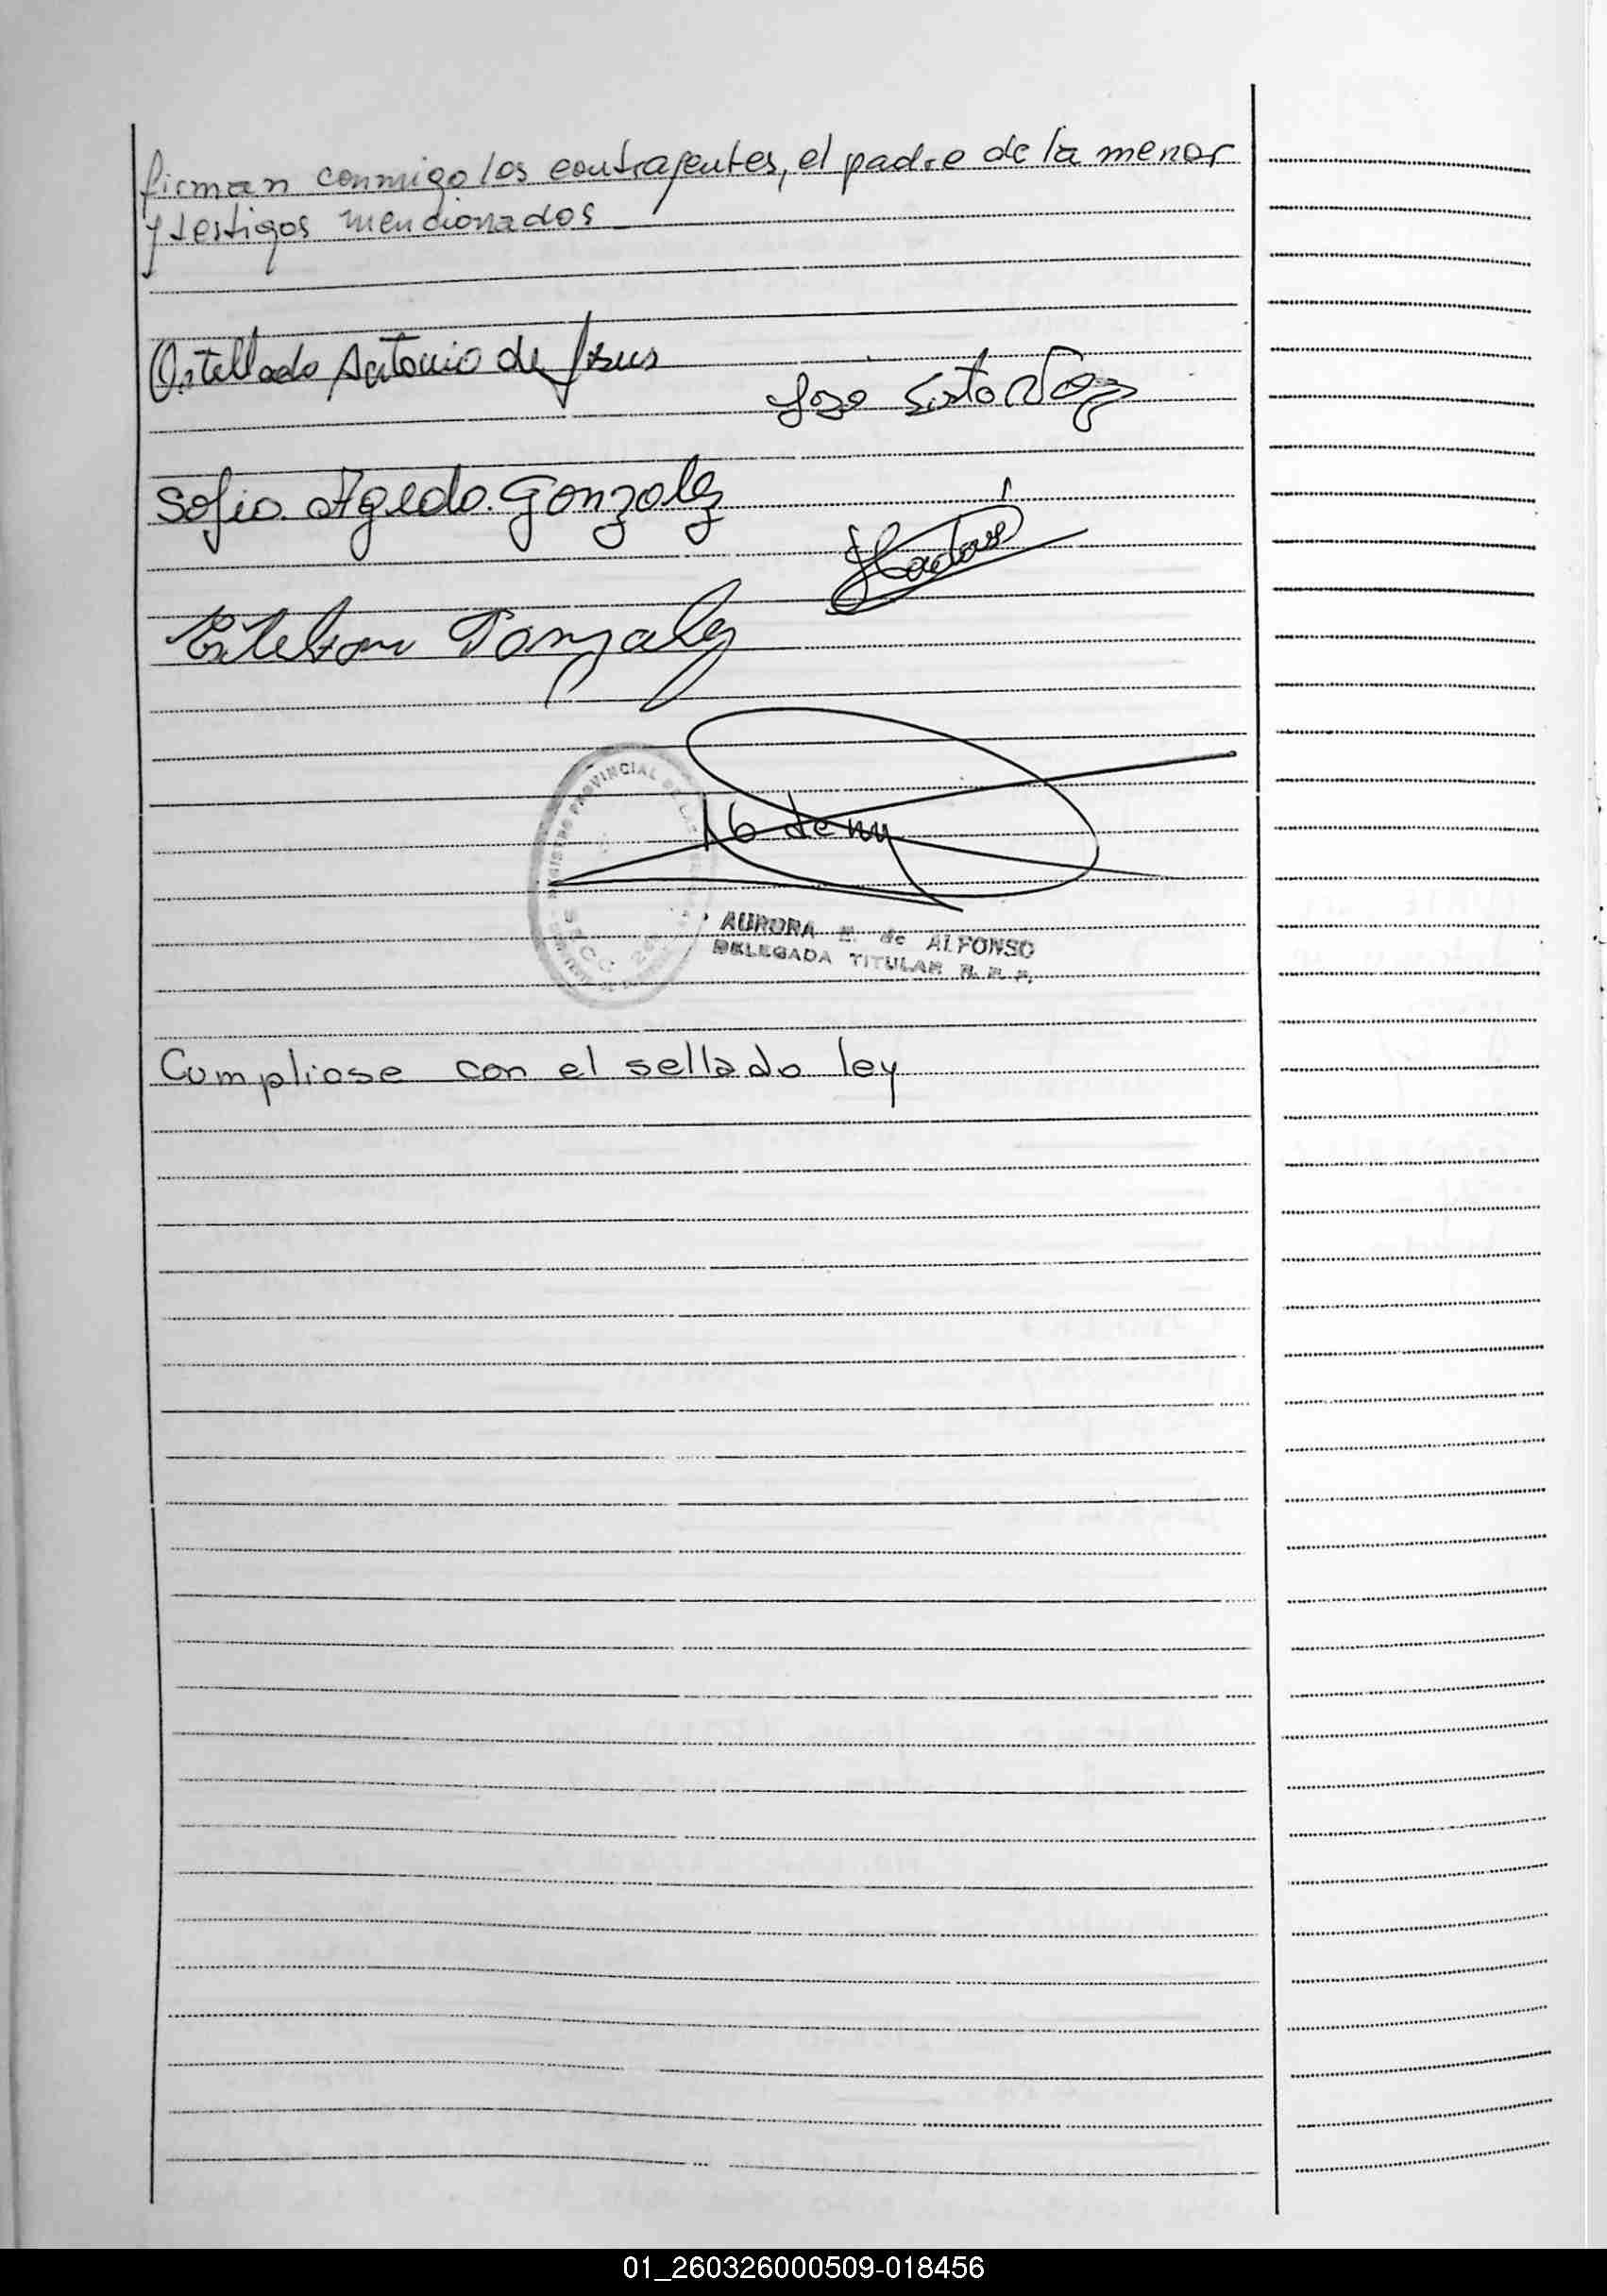 firman conmigo los contrayentes, el padre de la menor
y testigos mencionados
Ostellado Antonio de Jesus
Jose Sixto
Sofia Ageda Gonzalez
Esteban Gonzalez
REGISTRO PROVINCIAL DE LAS
AURORA E. de ALFONSO
DELEGADA TITULAR R. P. P.
Cumpliose con el sellado ley
01_260326000509-018456